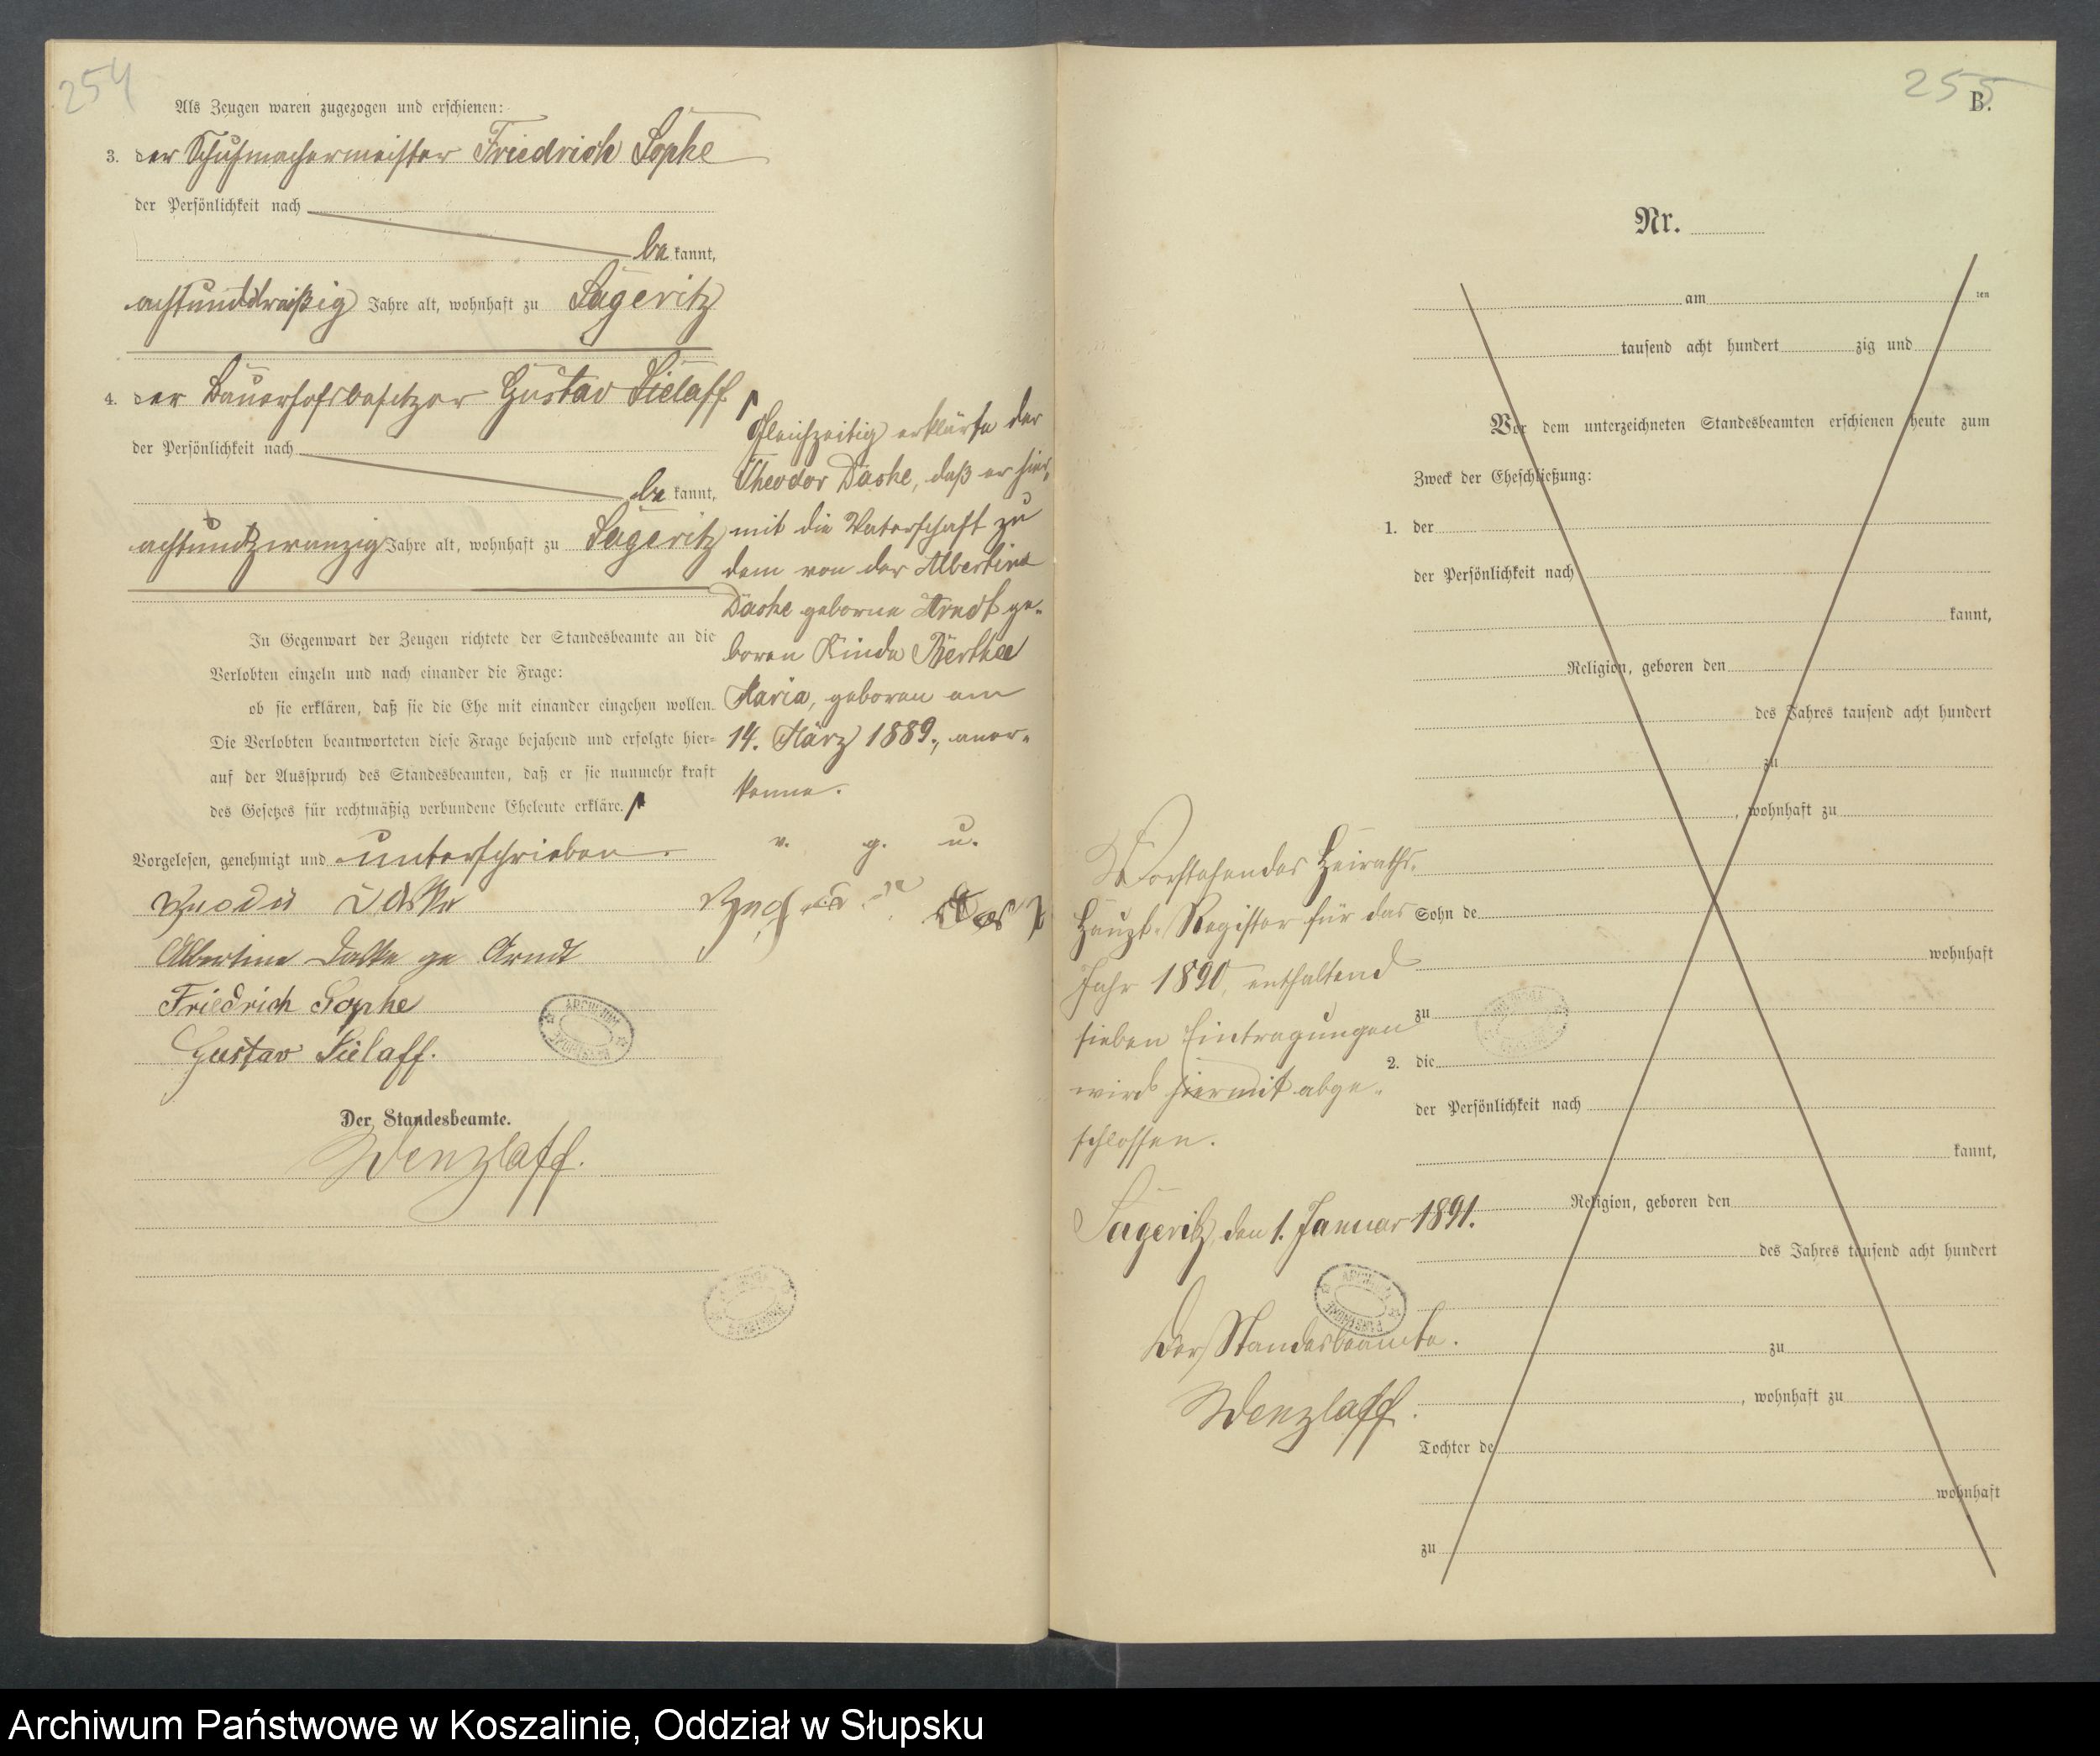 254
Als Zeugen waren zugezogen und erschienen:
3. der Schuhmachermeister Friedrich Sophe
der Persönlichkeit nach
be kannt,
achtunddreißig Jahre alt, wohnhaft zu Sageritz
4. der Bauerhofsbesitzer Gustav Kielaff
der Persönlichkeit nach
be kannt,
achtundzwanzig Jahre alt, wohnhaft zu Sageritz
In Gegenwart der Zeugen richtete der Standesbeamte an die
Verlobten einzeln und nach einander die Frage:
ob sie erklären, daß sie die Ehe mit einander eingehen wollen.
Die Verlobten beantworteten diese Frage bejahend und erfolgte hier-
auf der Ausspruch des Standesbeamten, daß er sie nunmehr kraft
des Gesetzes für rechtmäßig verbundene Eheleute erkläre.
Vorgelesen, genehmigt und unterschrieben.
Albertine Daske ge Arndt
Friedrich Sophe
Gustav Kielaff.
Der Standesbeamte.
Wenzlaff.
Gleichzeitig erklärte der
Theodor Daske, daß er hier-
mit die Vaterschaft zu
dem von der Albertine
Daske geborne Arndt ge-
boren Kinde Bertha
Maria, geboren am
14. März 1889., aner-
kenne.
v. g. u.
ARCHIWUM PAŃSTWOWE
255
B.
Nr.
am ten
tausend acht hundert zig und
Vor dem unterzeichneten Standesbeamten erschienen heute zum
Zweck der Eheschließung:
1. der
der Persönlichkeit nach
kannt,
Religion, geboren den
des Jahres tausend acht hundert
zu
, wohnhaft zu
Sohn de
wohnhaft
zu
2. die
der Persönlichkeit nach
kannt,
Religion, geboren den
des Jahres tausend acht hundert
zu
, wohnhaft zu
Tochter de
wohnhaft
zu
Vorstehendes Heiraths-
Haupt-Register für das
Jahr 1890, enthaltend
sieben Eintragungen
wird hiermit abge-
schlossen.
Sageritz, den 1. Januar 1891.
Der Standesbeamte.
Wenzlaff.
ARCHIWUM PAŃSTWOWE
Archiwum Państwowe w Koszalinie, Oddział w Słupsku